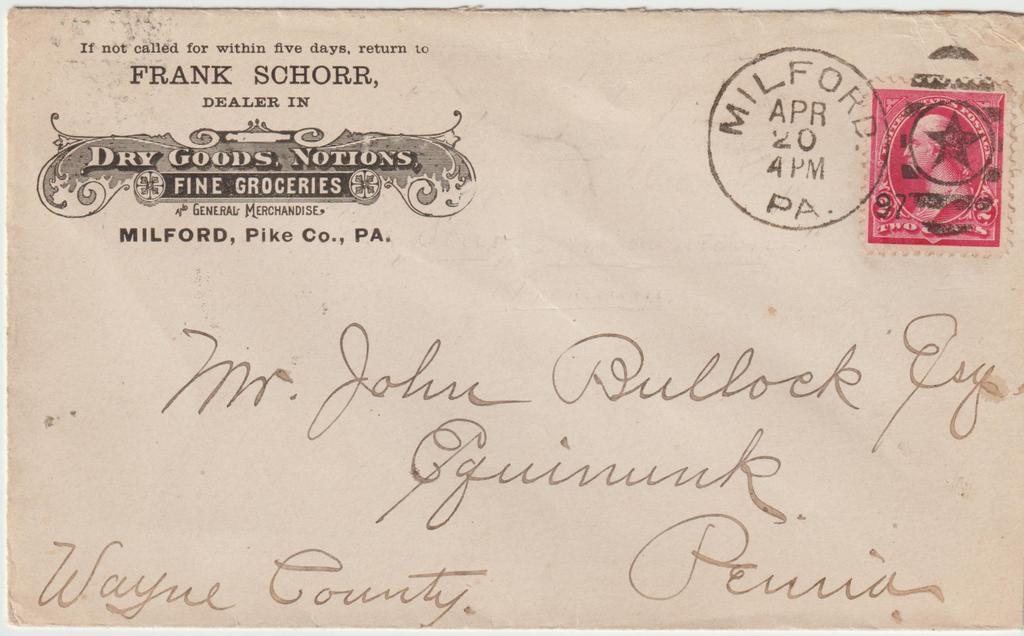 If not called for within five days, return to
FRANK SCHORR,
DEALER IN
DRY GOODS, NOTIONS,
FINE GROCERIES
AND GENERAL MERCHANDISE,
MILFORD, Pike Co., PA.
MILFORD.
APR
20
4 PM
97
PA.
UNITED STATES POSTAGE
TWO
2
Mr. John Bullock Esq
Equinunk
Penna
Wayne County.